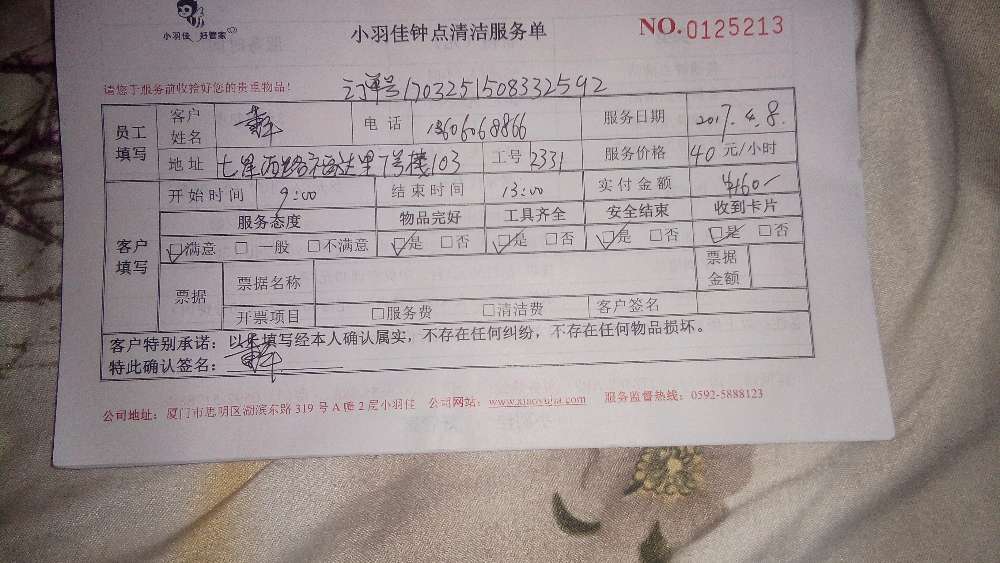 小羽佳 好管家
小羽佳钟点清洁服务单
NO.0125213
请您于服务前收拾好您的贵重物品!
订单号1703251508332592
员工填写 客户姓名 电话 13606068866 服务日期 2017.4.8.
地址 七星西路福达里7号楼103 工号 2331 服务价格 40 元/小时
客户填写 开始时间 9:00 结束时间 13:00 实付金额 ¥160-
服务态度 物品完好 工具齐全 安全结束 收到卡片
☑满意 □一般 □不满意 ☑是 □否 ☑是 □否 ☑是 □否 ☑是 □否
票据 票据名称 票据金额
开票项目 □服务费 □清洁费 客户签名
客户特别承诺:以上填写经本人确认属实,不存在任何纠纷,不存在任何物品损坏。
特此确认签名:
公司地址:厦门市思明区湖滨东路319号A幢2层小羽佳 公司网站:www.xiaoyujia.com 服务监督热线:0592-5888123